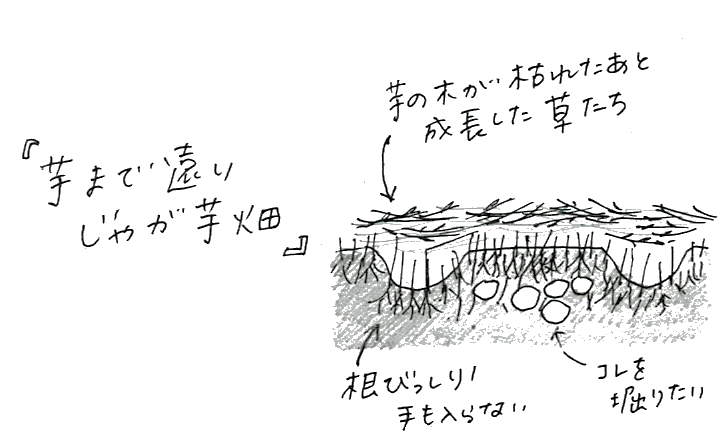 『芋まで遠い
じゃが芋畑』
芋の木が枯れたあと
成長した草たち
根びっしり!
手も入らない
コレを
堀りたい